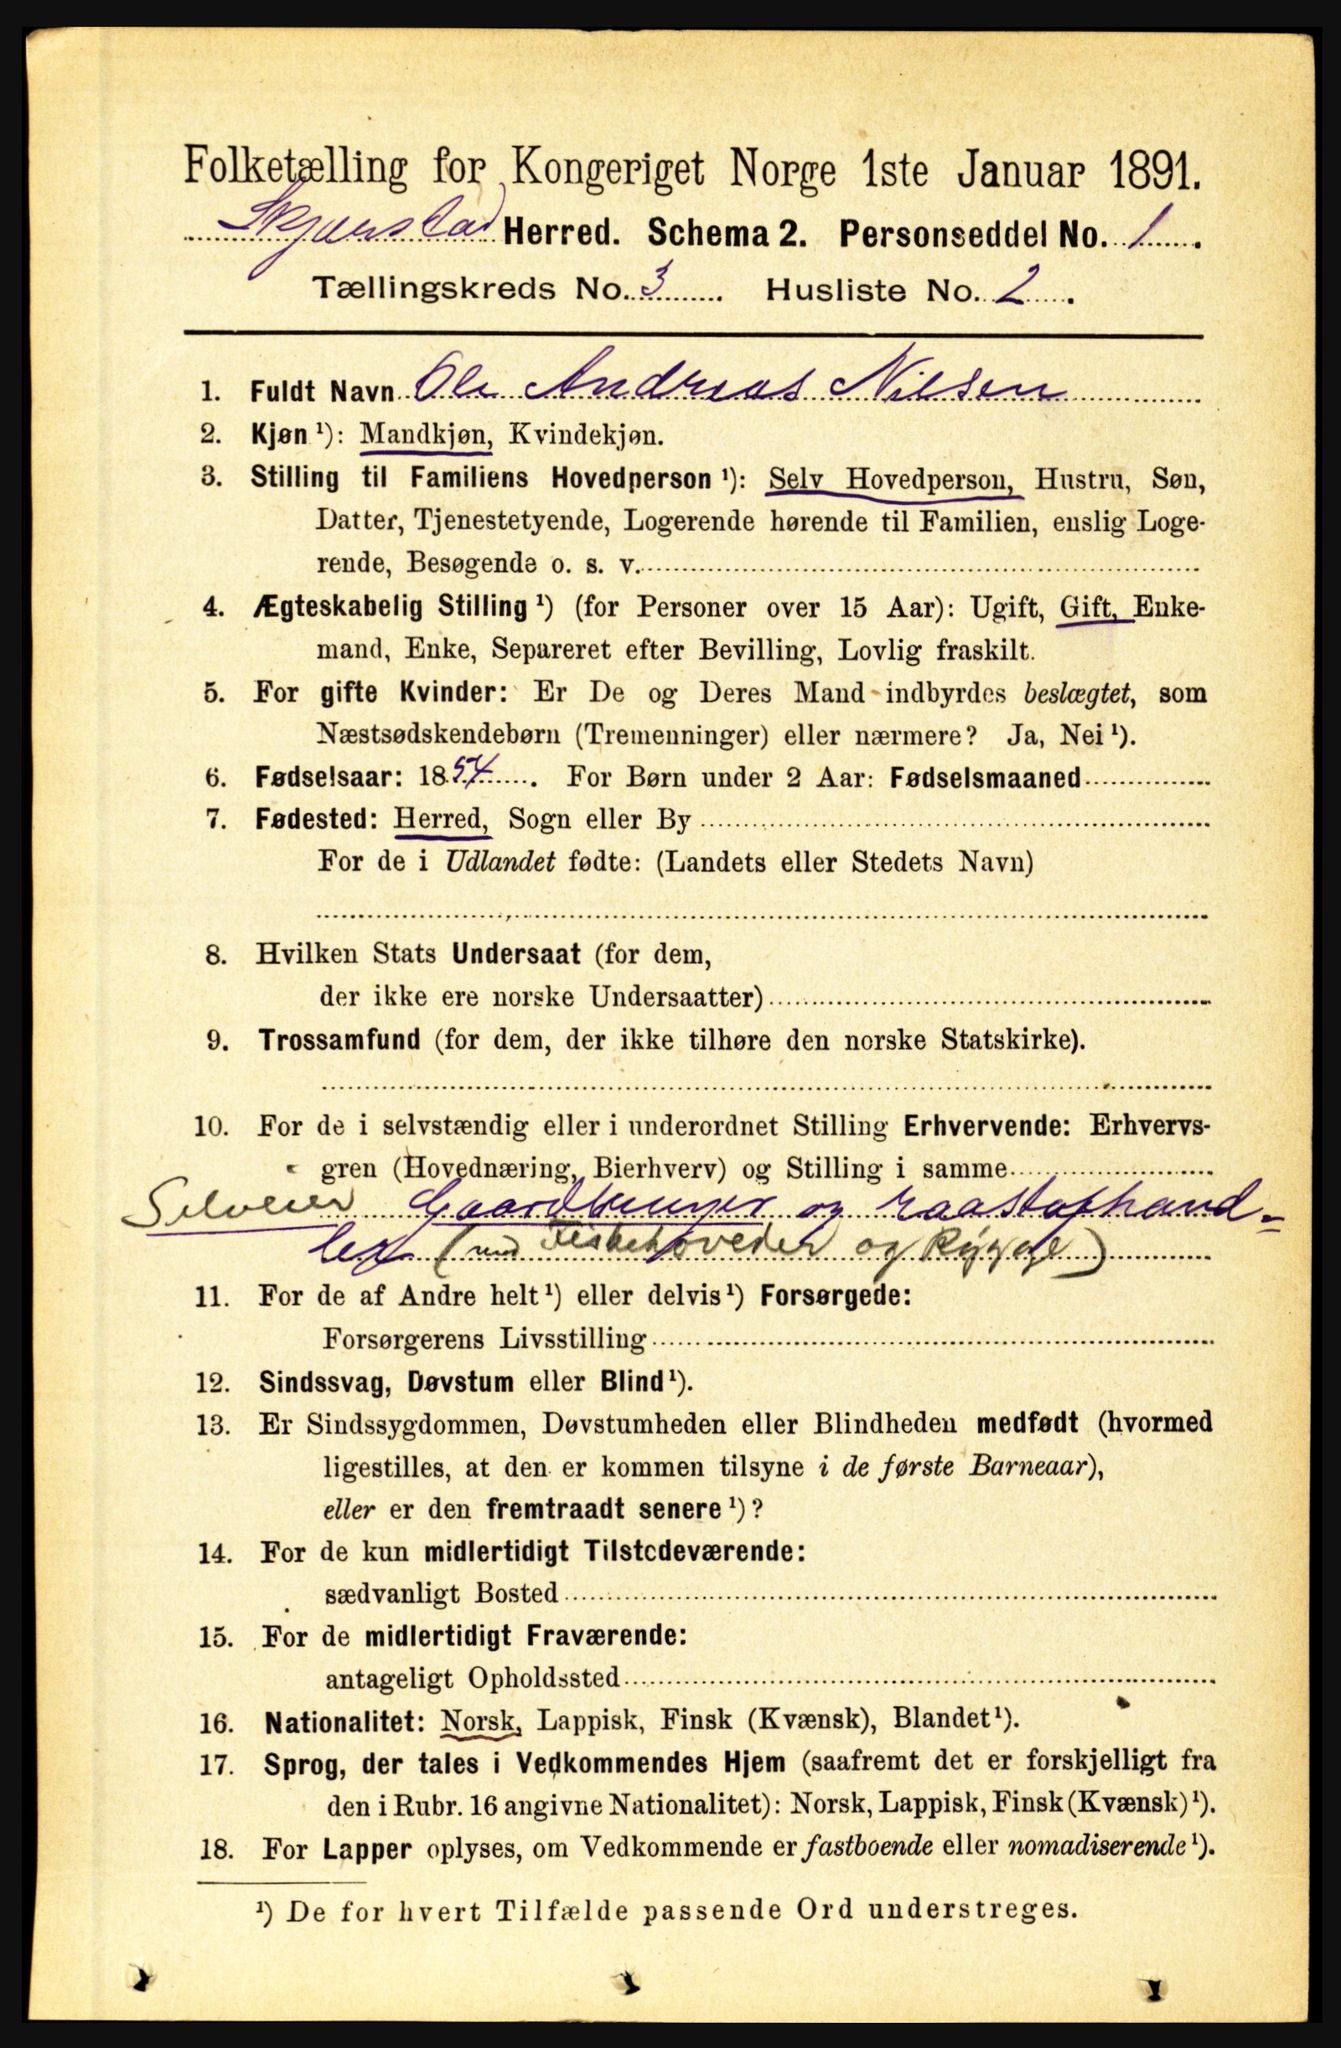 Folketælling for Kongeriget Norge 1ste Januar 1891.
Skjærstad Herred. Schema 2. Personseddel No. 1.
Tællingskreds No. 3. Husliste No. 2.
1. Fuldt Navn Ole Andreas Nilsen
2. Kjøn ¹): Mandkjøn, Kvindekjøn.
3. Stilling til Familiens Hovedperson ¹): Selv Hovedperson, Hustru, Søn,
Datter, Tjenestetyende, Logerende hørende til Familien, enslig Loge-
rende, Besøgende o. s. v.
4. Ægteskabelig Stilling ¹) (for Personer over 15 Aar): Ugift, Gift, Enke-
mand, Enke, Separeret efter Bevilling, Lovlig fraskilt.
5. For gifte Kvinder: Er De og Deres Mand indbyrdes beslægtet, som
Næstsødskendebørn (Tremenninger) eller nærmere? Ja, Nei ¹).
6. Fødselsaar: 1854. For Børn under 2 Aar: Fødselsmaaned
7. Fødested: Herred, Sogn eller By
For de i Udlandet fødte: (Landets eller Stedets Navn)
8. Hvilken Stats Undersaat (for dem,
der ikke ere norske Undersaatter)
9. Trossamfund (for dem, der ikke tilhøre den norske Statskirke).
10. For de i selvstændig eller i underordnet Stilling Erhvervende: Erhvervs-
gren (Hovednæring, Bierhverv) og Stilling i samme
Selveier Gaardbruger og raastofhand-
ler (med Fiskehoveder og Rygge)
11. For de af Andre helt ¹) eller delvis ¹) Forsørgede:
Forsørgerens Livsstilling
12. Sindssvag, Døvstum eller Blind ¹).
13. Er Sindssygdommen, Døvstumheden eller Blindheden medfødt (hvormed
ligestilles, at den er kommen tilsyne i de første Barneaar),
eller er den fremtraadt senere ¹)?
14. For de kun midlertidigt Tilstedeværende:
sædvanligt Bosted
15. For de midlertidigt Fraværende:
antageligt Opholdssted
16. Nationalitet: Norsk, Lappisk, Finsk (Kvænsk), Blandet ¹).
17. Sprog, der tales i Vedkommendes Hjem (saafremt det er forskjelligt fra
den i Rubr. 16 angivne Nationalitet): Norsk, Lappisk, Finsk (Kvænsk) ¹).
18. For Lapper oplyses, om Vedkommende er fastboende eller nomadiserende ¹).
¹) De for hvert Tilfælde passende Ord understreges.